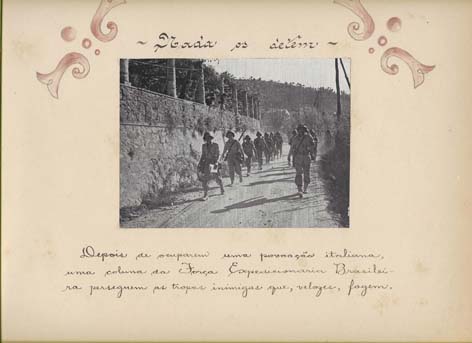 ~ Nada os detêm ~
Depois de ocuparem uma povoação italiana,
uma coluna da Força Expedicionaria Brasilei-
ra perseguem as tropas inimigas que, velozes, fogem.